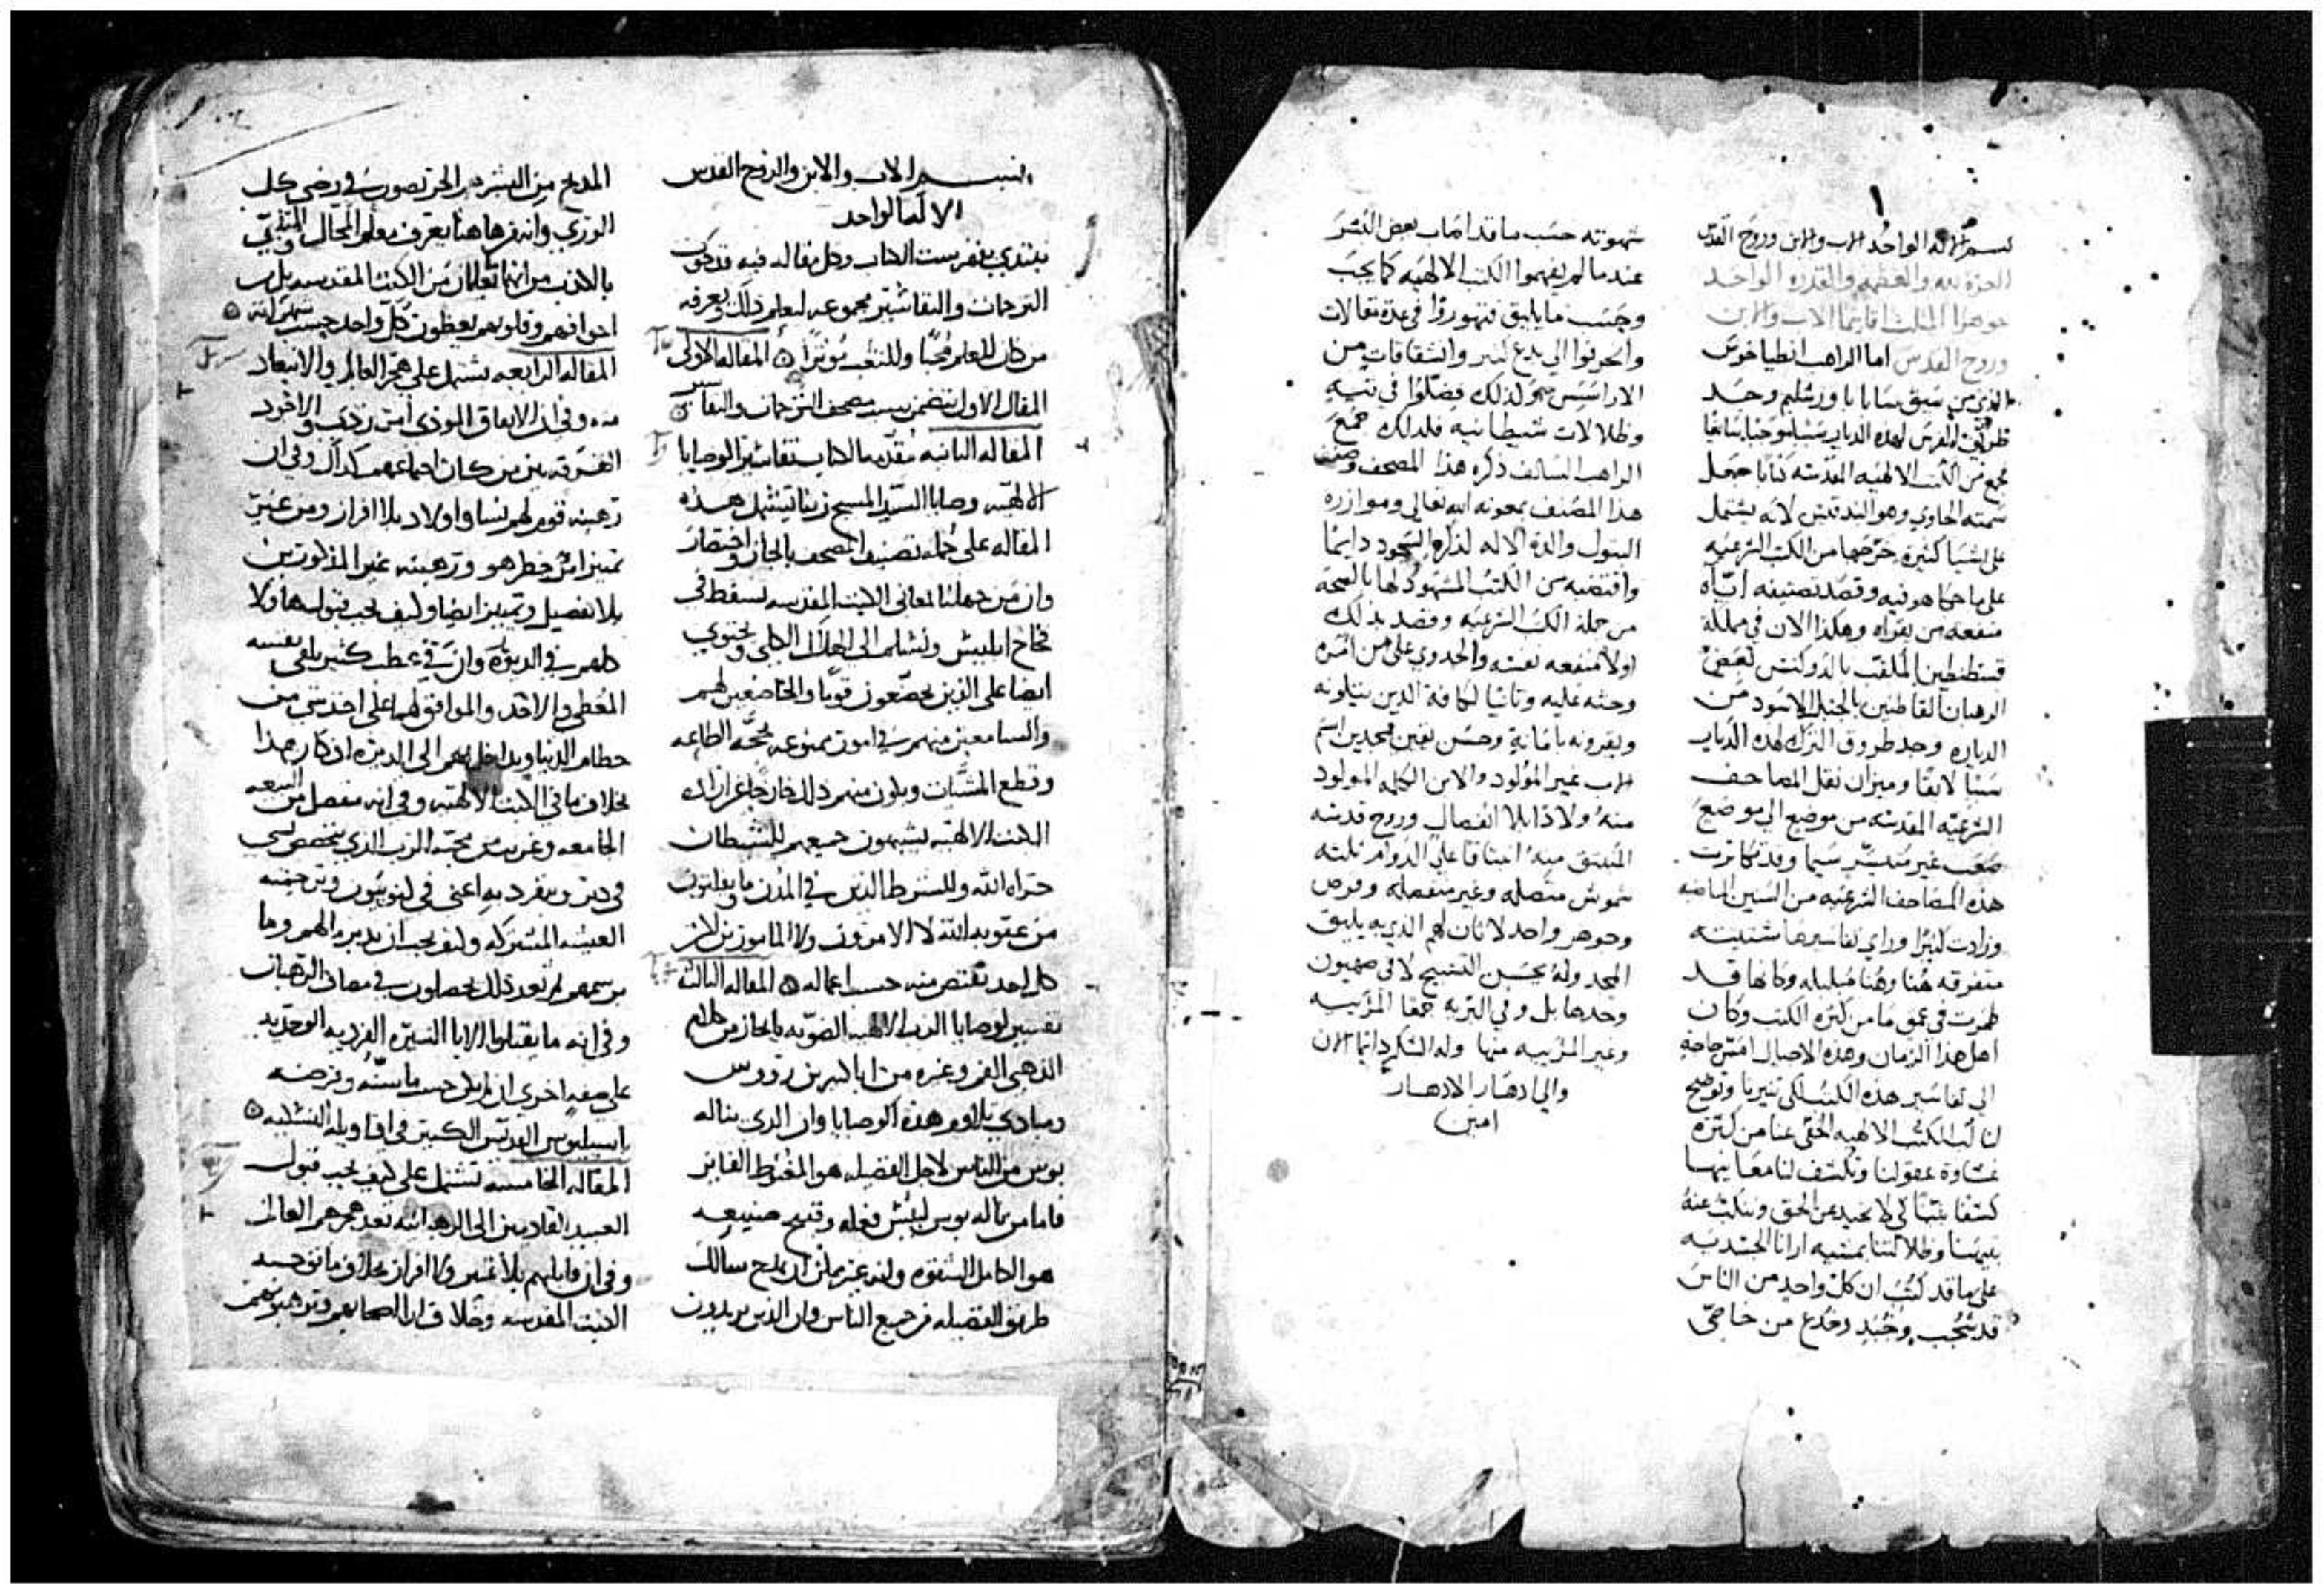 بسم الاله الواحد الاب والابن وروح القدس
العزة لله والعظمه والقدره الواحد
جوهرا المثلث اقانيما الاب والابن
وروح القدس اما الراهب انطياخوس
الذي من سيق سابا باورشليم وحد
لهذه الديار
مجمع من الكتب الالهيه المقدسه كتابا جعل
سمته الحاوي وهو البندقتس لانه يشتمل
على اشيا كثيرة خرجها من الكتب الشرعيه
على ما هو فيه وقصد تصنيفه
منفعه من يقراه وهكذا الان في مملكة
قسطنطين الملقب بالدوكس بعض
الرهبان القاطنين بالجبل الاسود من
الدياره وجد طروق الترك لهذه الديار
سببا لايقا وميزان نقل المصاحف
الشرعيه المقدسه من موضع الى موضع
صعب غير متيسر سيما وقد تكاثرت
هذه المصاحف الشرعيه من السنين الماضيه
وزادت كثيرا وراي تفاسيرها متشتته
متفرقه هنا وهنا مبلبله وكانها قد
طمرت في عمق ما من كثرة الكتب وكان
اهل هذا الزمان وهذه الاجيال امس حاجة
الى تفاسير هذه الكتب لكي تنيرنا وتوضح
لنا لب الكتب الالهيه الخفي عنا من كثرة
غشاوة عقولنا وتكشف لنا معانيها
كشفا بينا كي لا نحيد عن الحق وننكب عنه
بتيهنا وضلالتنا بمشيه ارانا الجسدنيه
على ما قد كتب ان كل واحد من الناس
قد يجذب وخدع من خاصي
شهوته حسب ما قد اصاب بعض البشر
عندما لم يفهموا الكتب الالهيه كما يجب
وحسب ما يليق فتهوروا في عدة مقالات
وانحرفوا الى بدع كثير وانشقاقات من
الاراسيس لذلك فضلوا في تيه
وظلالات شيطانيه فلذلك جمع
الراهب السالف ذكره هذا المصحف وصنف
هذا المصنف بمعونه الله تعالى وموازرة
البتول والدة الاله لذكره السجود دايما
واقتضبه من الكتب المشهود لها بالصحة
من جملة الكتب الشرعيه وقصد بذلك
اولا منفعه نفسه والجدوى على من امره
وحثه عليه وثانيا لكافة الدين يتلونه
ويقرونه بامانة وحسن يقين ممجدين اسم
الاب غير المولود والابن الكلمه المولود
منه ولادا بلا انفصال وروح قدسه
المنبثق منه انبثاقا على الدوام ثلثه
شموس متصله وغير منفصله وفرص
وجوهر واحد لا ثان لهم الذي به يليق
المجد وله يحسن التسبيح لا في صهيون
وحدها بل وفي البريه جمعا المرئيه
وغير المرئيه منها وله الشكر دائما الان
والى ادهار الادهار
امين
بسم الاب والابن والروح القدس
الاله الواحد
نبتدي بفهرست الكتاب وكل مقاله فيه قد تكون
الترجمات والتفاسير مجموعه ليعلم ذلك ويعرفه
من كان للعلم محبا وللتعب موثرا المقاله الاولى
المقال الاول يتضمن سبب مصحف الترجمات والتفاسير
المقاله الثانيه مقدمه الكتاب تفاسير الوصايا
الالهيه وصايا السيد المسيح ربنا تشتمل هذه
المقاله على جمله تصنيف المصحف بايجاز واختصار
وان من جهلنا لمعاني الكتب المقدسه نسقط في
فخاخ ابليس ونسلم الى الهلاك الكلي ويحتوي
ايضا على الذين يخضعون قوما والخاضعين لهم
والسامعين منهم في امور ممنوعه بحجة الطاعه
وقطع المشيات ويكون منهم ذلك خارجا عن ارادة
الكتب الالهيه يشبهون جميعهم للشيطان
حتراه الله وللشرط الذين في المدن وما يفلتون
من عقوبه الله لا الامرون ولا المامورين لان
كل احد يقتص منه حسب اعماله المقاله الثالثه
تفسير لوصايا الرب الالهيه الضويه بايجاز من كلام
الذهبي الفم وغيره من ابا كثيرين رووس
ومبادي تتلوهم هذه الوصايا وان الذي يناله
بوس من الناس لاجل الفضيله هو المغبوط الفايز
فاما من يناله بوس لبيس فعله وقبيح صنيعه
هو الكامل الشقوه وانه غير ممكن ان يمدح سالك
طريق الفضيله من جميع الناس وان الذين يريدون
المديح من البشر هم الى كل
الردي وانه من هاهنا يعرف معلم المحال المتنبي
بالكذب من انهما يعلمان من الكتب المقدسه بل من
اجوافهم وقلوبهم يعظون كل واحد حسب شهواته
المقاله الرابعه تشتمل على هجر العالم والابتعاد
منه وفي ان الاتفاق الموذي امر ردي والاجود
الفرقه بين من كان اجتماعهم كذلك وفي ان
ترهيبه قوم لهم نسا واولاد بلا افراز ومن غير
تمييز امر خطر هو وترهيبه غير المذكورين
بلا تفصيل وتمييز ايضا وكيف يجب قبولها ولا
كلهم في الديورة وان في عطب كثير يلقى نفسه
المعطي والاخد والموافق لهما على اخد شي من
حطام الدنيا ويداخل بهم الى الديره اذ كان هذا
بخلاف ما في الكتب الالهيه وفي انه منفصل من البيعه
الجامعه وغريب من محبه الرب الذي يتخصص لشي
في دير وينفرد به اعني في كنوبيون وترجمته
العيشه المشتركه وكيف يجب ان يدبره الهم وما
يرسمهم ثم بعد ذلك يحصلون في مصاف الرهبان
وفي انه ما يقبلوا الابا السيره الفرديه الوحديه
على صفه اخرى ان لم يكن حسب ما سنه وفرضه
باسيليوس القديس الكبير في اقاويله النسكيه
المقاله الخامسه تشتمل على كيف يجب قبول
العبيد القادمين الى الرهبانيه بعد هجرهم العالم
وفي ان قابلهم بلا تمييز ولا افراز بخلاف ما توجبه
الكتب المقدسه وخلاف